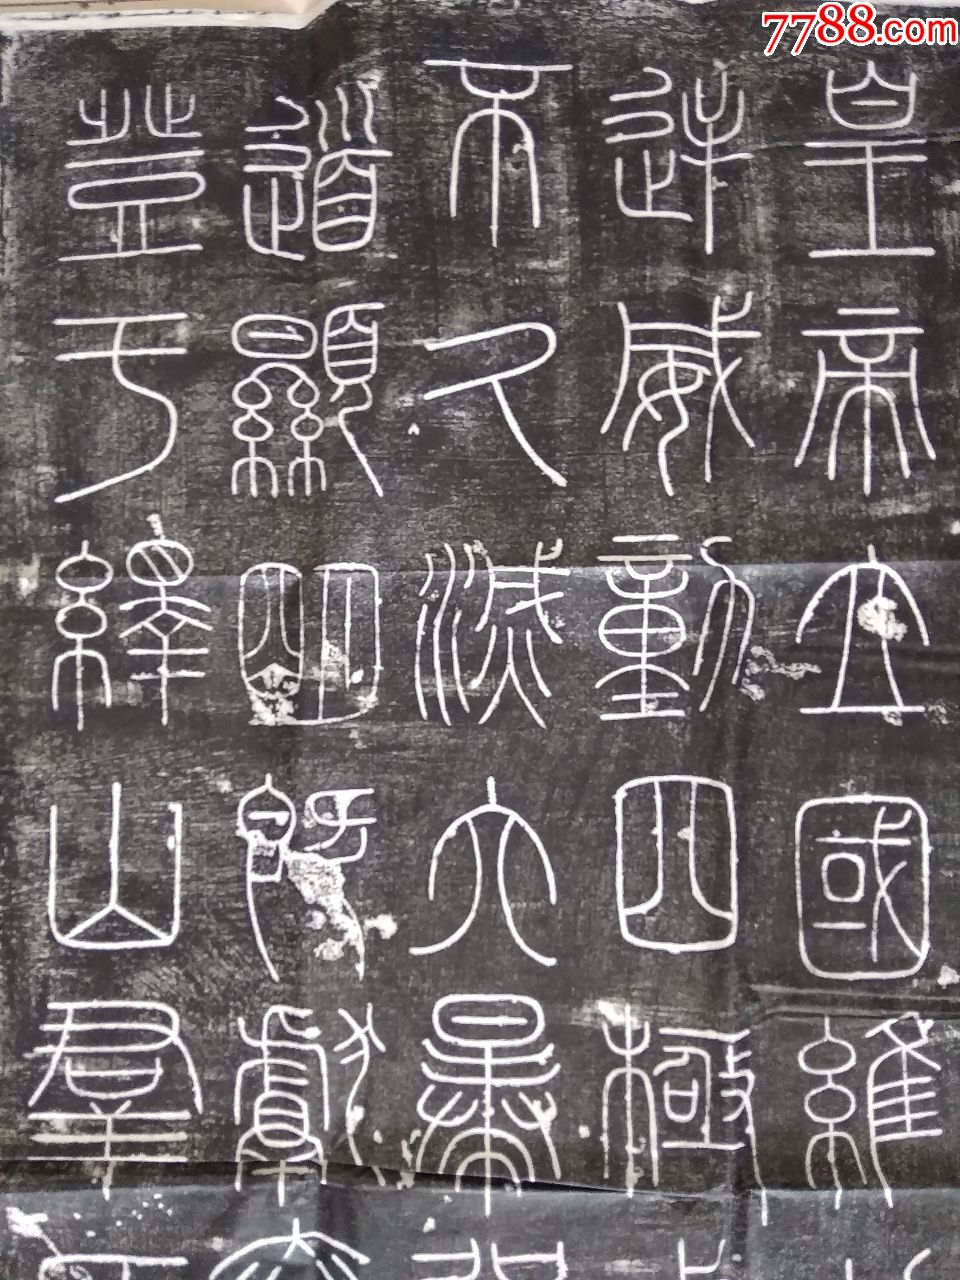 皇帝立國維
逆威動四極
不久滅六暴
道顯明既獻
登于繹山群
7788.com